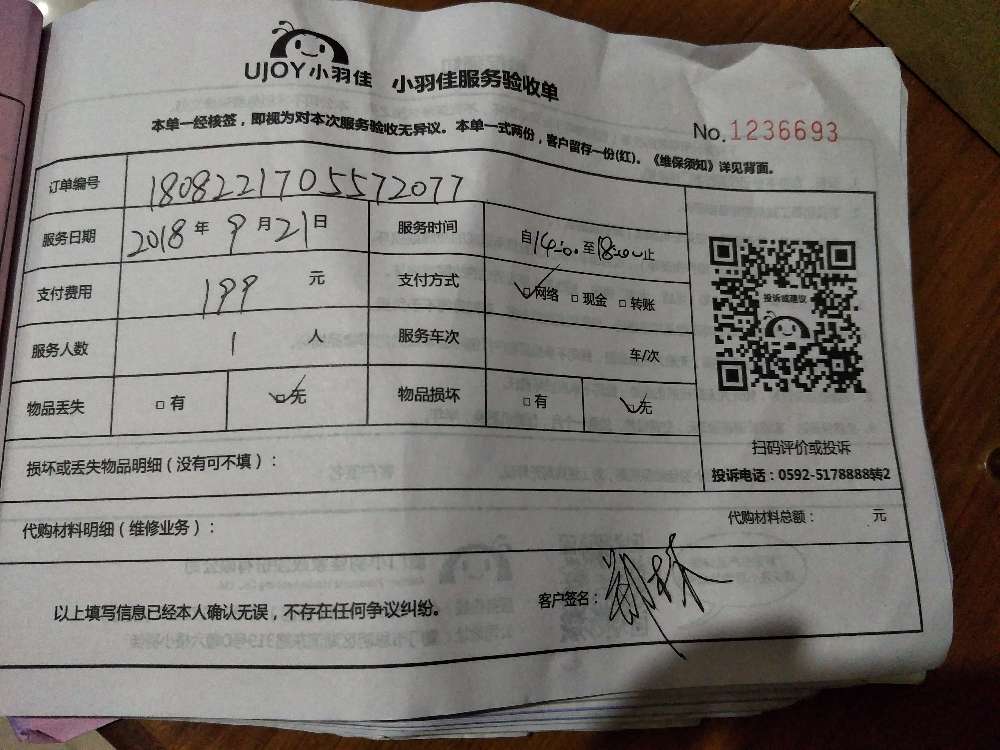 UJOY小羽佳 小羽佳服务验收单
No.1236693
本单一经核签，即视为对本次服务验收无异议。本单一式两份，客户留存一份(红)。《维保须知》详见背面。
订单编号 1808221705572077
服务日期 2018年9月21日 服务时间 自14:00至18:00止
支付费用 199元 支付方式 网络 现金 转账
服务人数 1人 服务车次 车/次
物品丢失 有 无 物品损坏 有 无
投诉或建议
扫码评价或投诉
投诉电话：0592-5178888转2
损坏或丢失物品明细（没有可不填）：
代购材料明细（维修业务）： 代购材料总额： 元
以上填写信息已经本人确认无误，不存在任何争议纠纷。 客户签名：